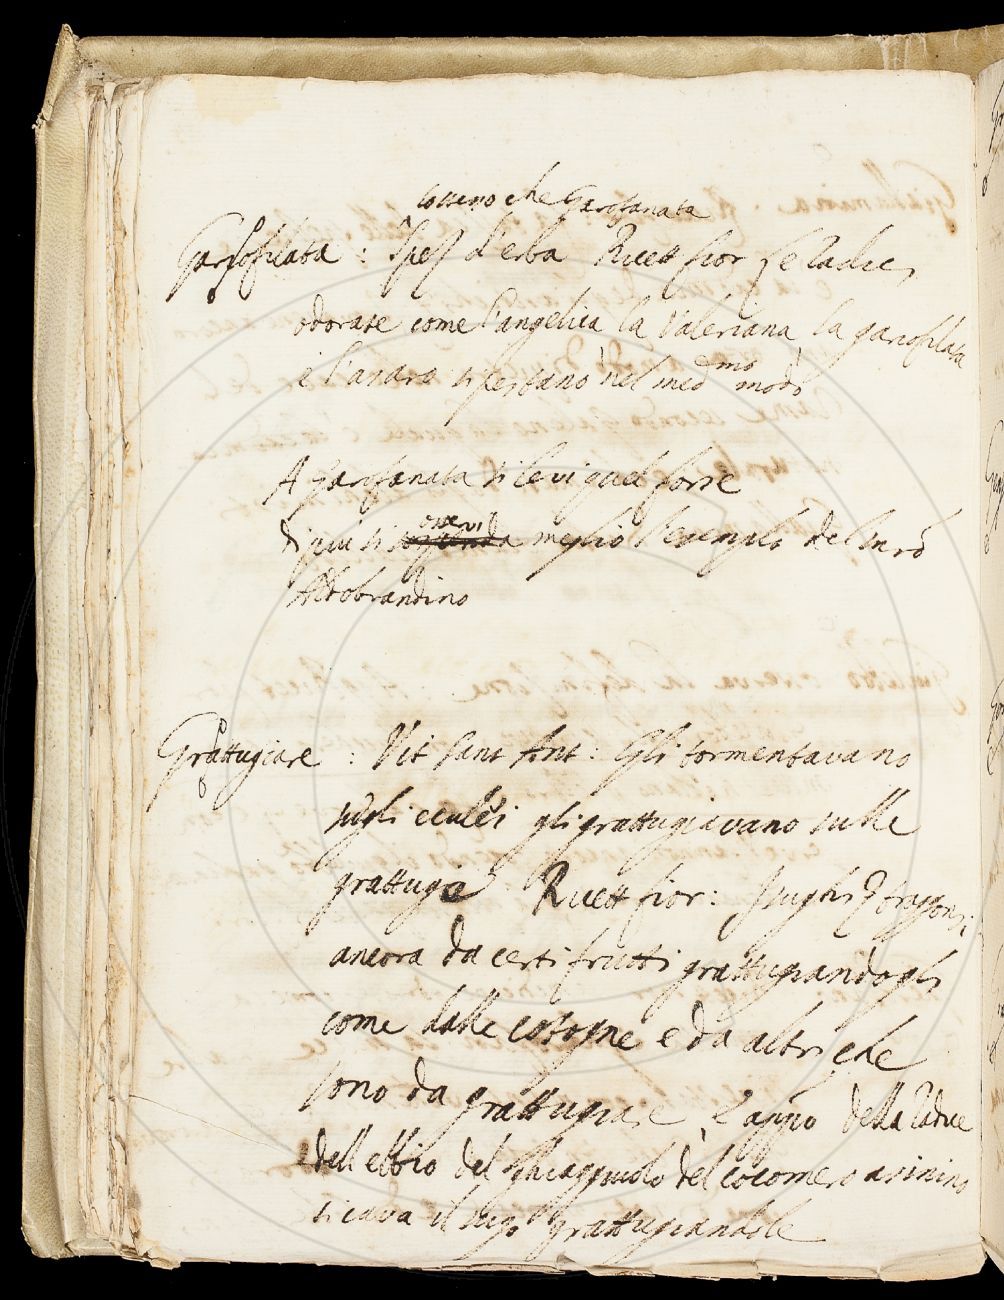 lo stesso che Garofanata
Garofilata : Spez d'erba Ricett fior le Radici
odorate come l'angelica la Valeriana la garofilata
e l'asaro si pestano nel med.mo modo
A Garofanata si levi quel forse
di qui si osservi meglio l'esemplo del
Aldobrandino
Grattugiare : Vit Sant Ant : Gli tormentavano
sugli eculei gli grattugiavano sulle
grattugie Ricett fior :
ancora da certi frutti grattugiandogli
come dalle cotogne e da altri che
sono da grattugiare E appo della Radice
dell'ebbio del ghiaggiuolo del cocomero asinino
si cava il sugo grattugiandole